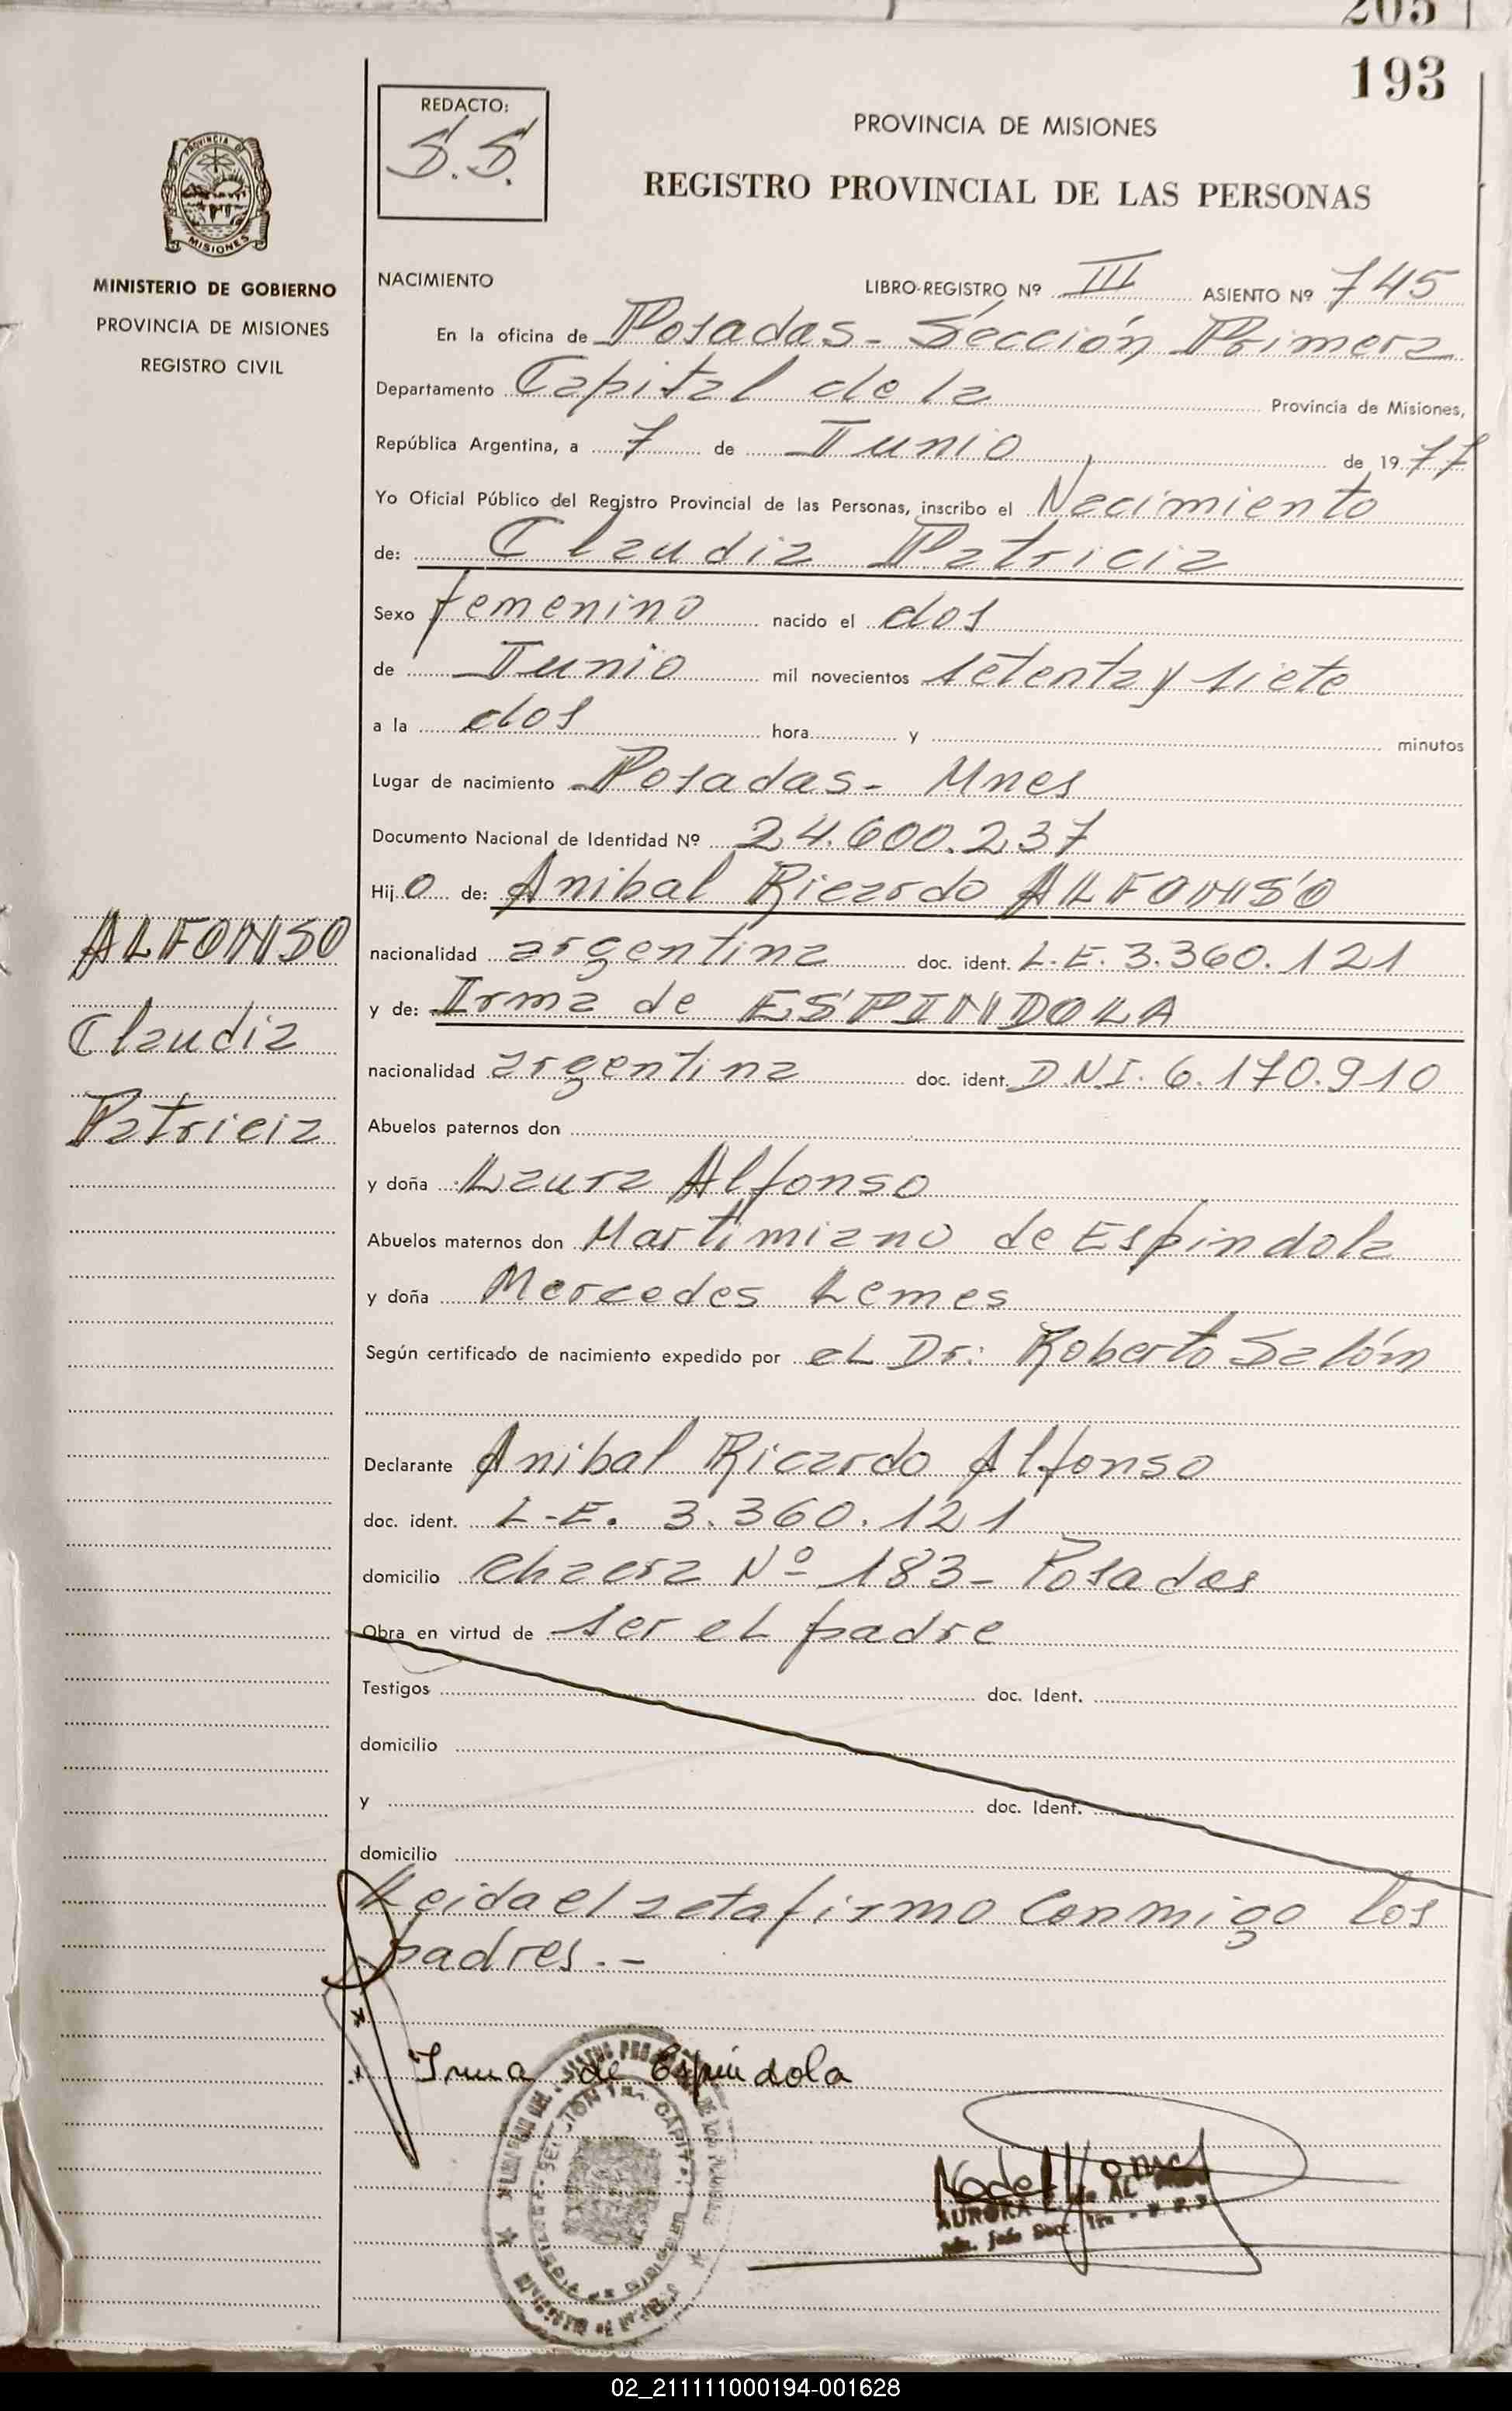 205
193
REDACTO:
S.S.
PROVINCIA DE MISIONES
REGISTRO PROVINCIAL DE LAS PERSONAS
MISIONES
MINISTERIO DE GOBIERNO
PROVINCIA DE MISIONES
REGISTRO CIVIL
NACIMIENTO LIBRO-REGISTRO Nº III ASIENTO Nº 745
En la oficina de Posadas - Sección Primera
Departamento Capital de la Provincia de Misiones,
República Argentina, a 7 de Junio de 1977
Yo Oficial Público del Registro Provincial de las Personas, inscribo el Nacimiento
de: Claudia Patricia
Sexo femenino nacido el dos
de Junio mil novecientos setenta y siete
a la dos hora y minutos
Lugar de nacimiento Posadas - Mnes
Documento Nacional de Identidad Nº 24.600.237
Hijo de: Anibal Ricardo ALFONSO
nacionalidad argentina doc. ident. L.E. 3.360.121
y de: Irma de ESPINDOLA
nacionalidad argentina doc. ident. D.N.I. 6.170.910
ALFONSO
Claudia
Patricia
Abuelos paternos don
y doña Laura Alfonso
Abuelos maternos don Martimiano de Espindola
y doña Mercedes Lemes
Según certificado de nacimiento expedido por el Dr: Roberto Salóm
Declarante Anibal Ricardo Alfonso
doc. ident. L.E. 3.360.121
domicilio chacra Nº 183 - Posadas
Obra en virtud de ser el padre
Testigos doc. Ident.
domicilio
y doc. Ident.
domicilio
Leida el acta firmo conmigo los
padres.-
Irma de Espindola
AURORA
02_211111000194-001628